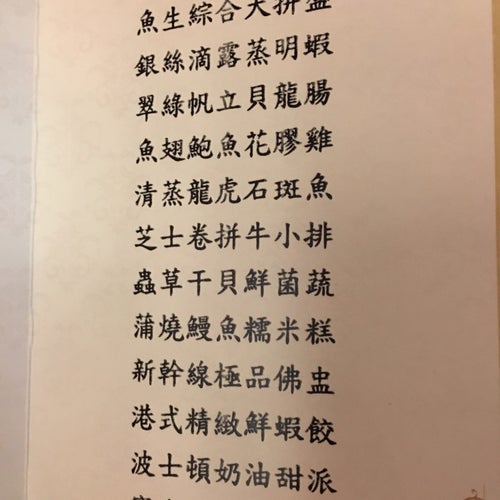 魚生綜合大拼盤
銀絲滴露蒸明蝦
翠綠帆立貝龍腸
魚翅鮑魚花膠雞
清蒸龍虎石斑魚
芝士卷拼牛小排
蟲草干貝鮮菌蔬
蒲燒鰻魚糯米糕
新幹線極品佛盅
港式精緻鮮蝦餃
波士頓奶油甜派